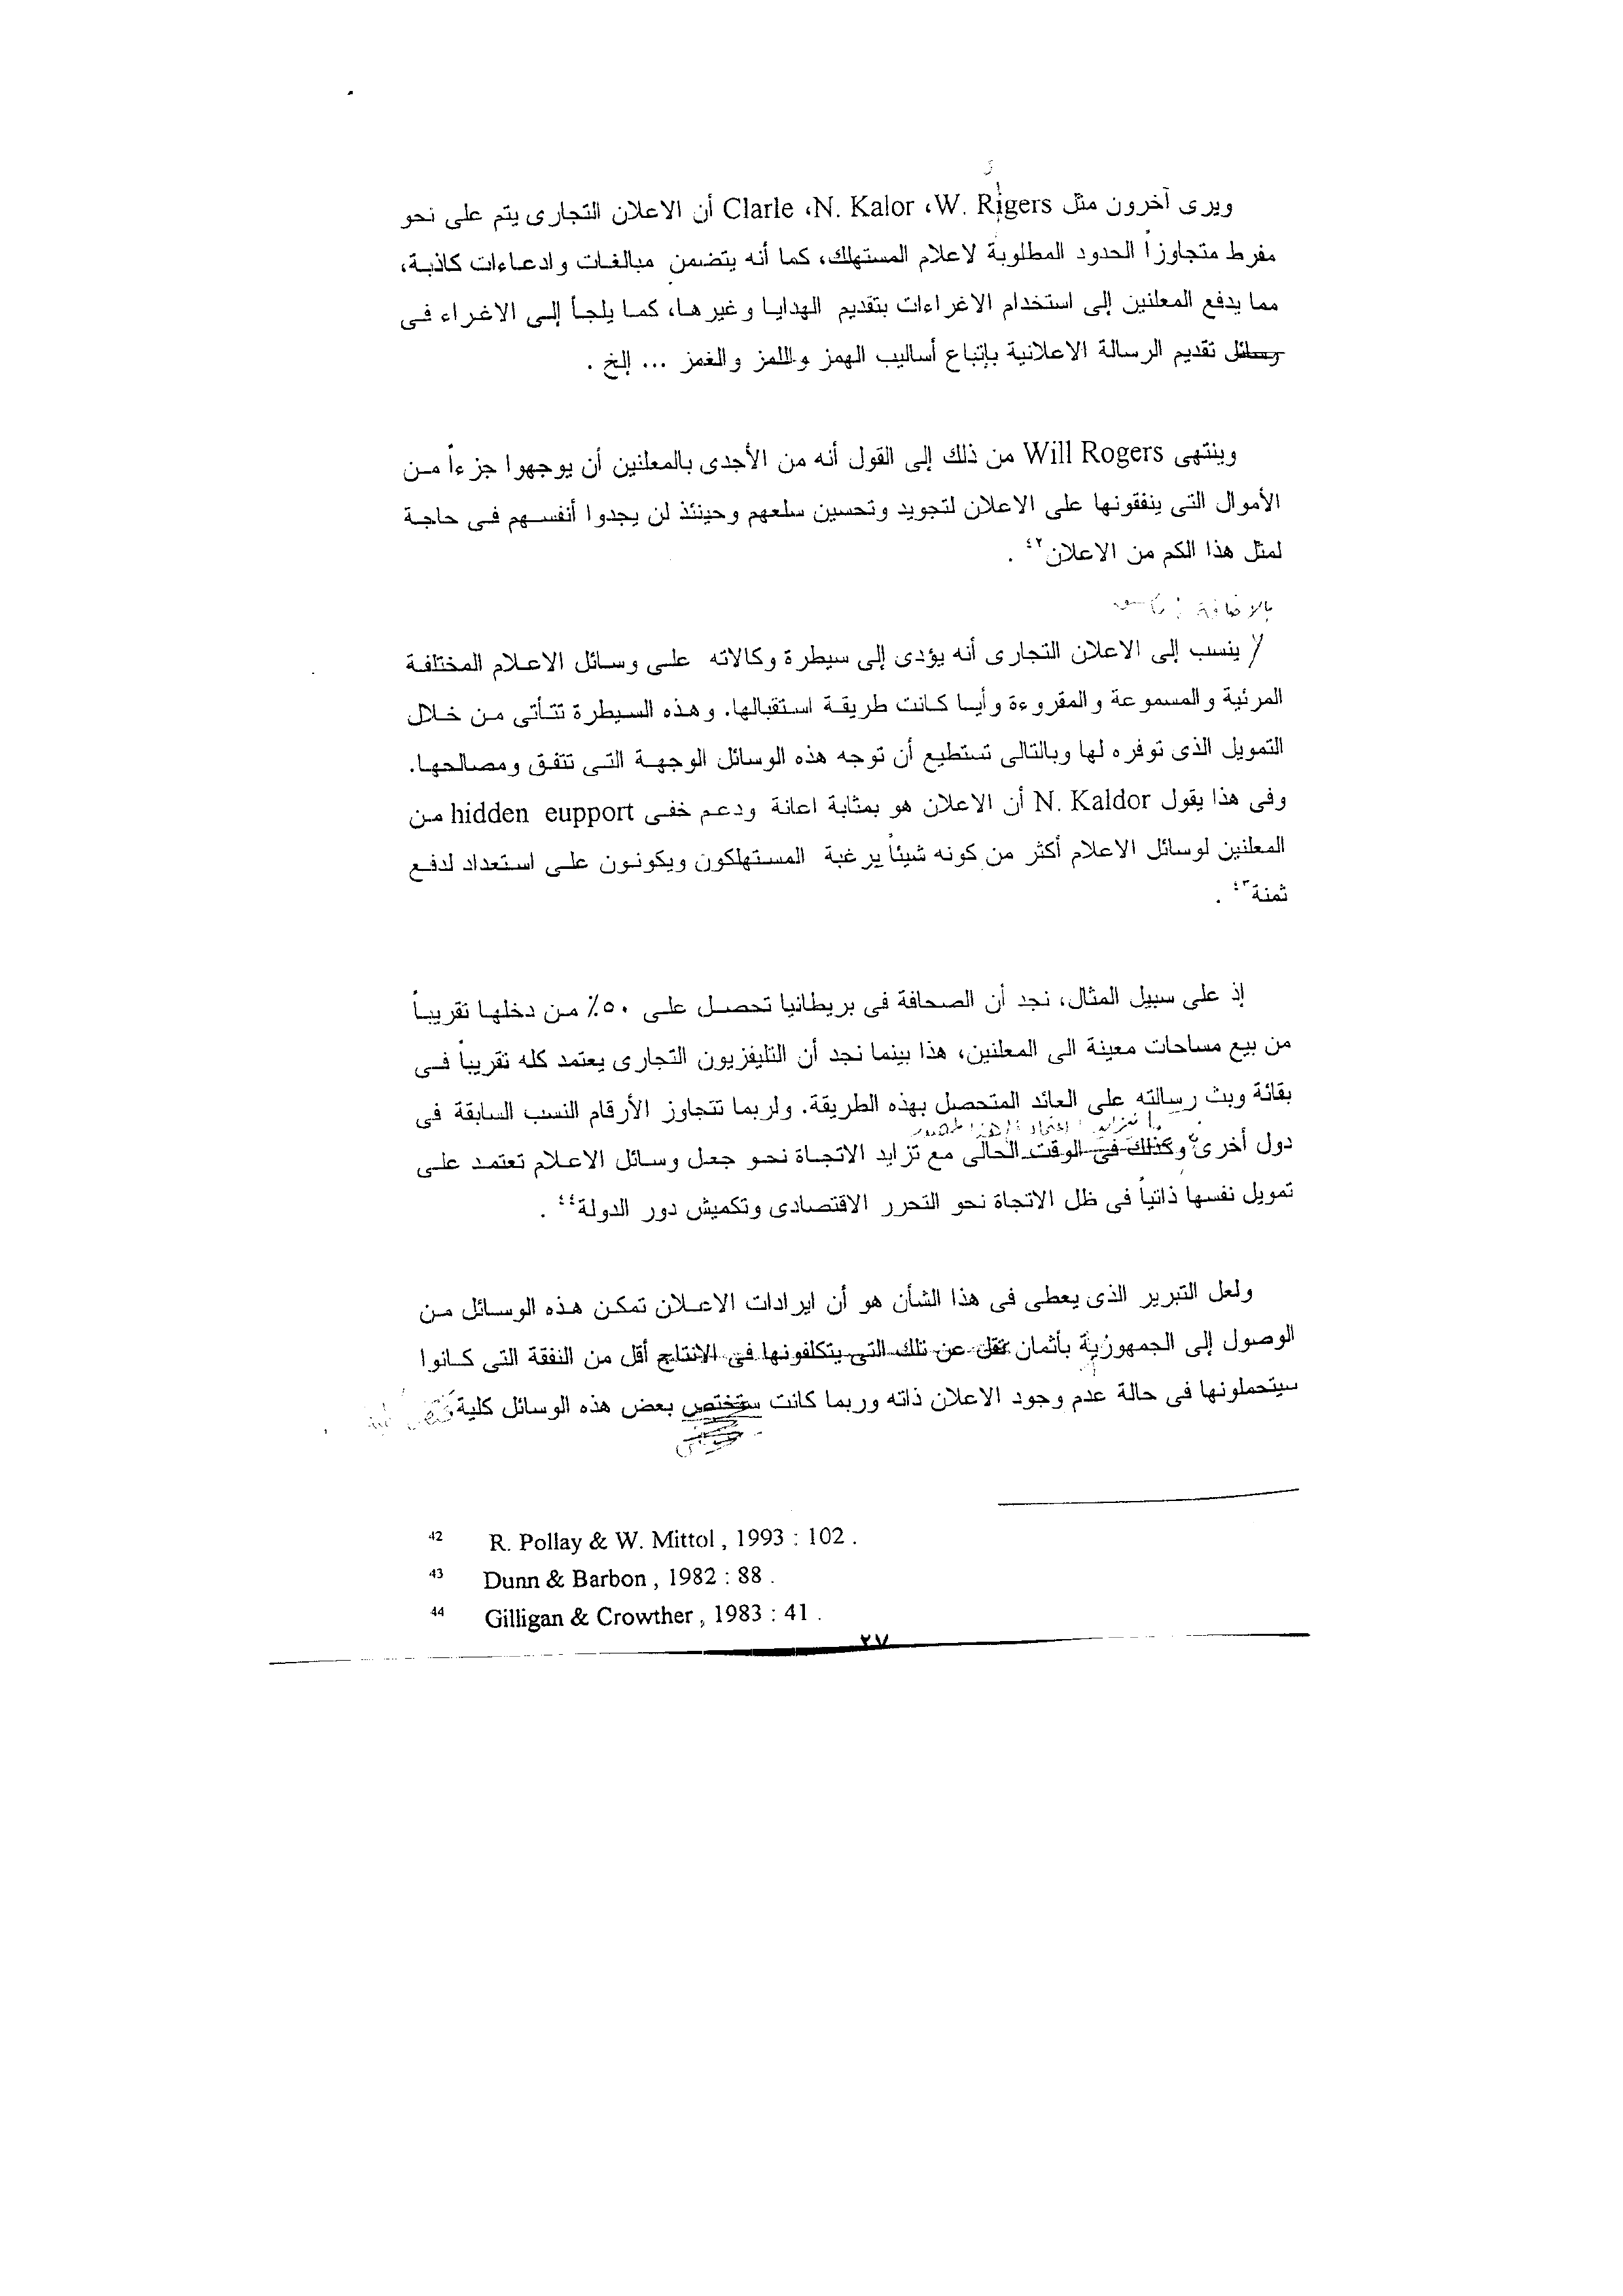 ويرى آخرون مثل Clarle ،N. Kalor ،W. Rigers أن الاعلان التجارى يتم على نحو
مفرط متجاوزاً الحدود المطلوبة لاعلام المستهلك، كما أنه يتضمن مبالغات وادعاءات كاذبة،
مما يدفع المعلنين إلى استخدام الاغراءات بتقديم الهدايا وغيرها، كما يلجأ إلى الاغراء فى
وسائل تقديم الرسالة الاعلانية بإتباع أساليب الهمز واللمز والغمز ... إلخ .
وينتهى Will Rogers من ذلك إلى القول أنه من الأجدى بالمعلنين أن يوجهوا جزءاً من
الأموال التى ينفقونها على الاعلان لتجويد وتحسين سلعهم وحينئذ لن يجدوا أنفسهم فى حاجة
لمثل هذا الكم من الاعلان٤٢ .
بالاضافة
ينسب إلى الاعلان التجارى أنه يؤدى إلى سيطرة وكالاته على وسائل الاعلام المختلفة
المرئية والمسموعة والمقروءة وأيا كانت طريقة استقبالها. وهذه السيطرة تتأتى من خلال
التمويل الذى توفره لها وبالتالى تستطيع أن توجه هذه الوسائل الوجهة التى تتفق ومصالحها.
وفى هذا يقول N. Kaldor أن الاعلان هو بمثابة اعانة ودعم خفى hidden eupport من
المعلنين لوسائل الاعلام أكثر من كونه شيئاً يرغبة المستهلكون ويكونون على استعداد لدفع
ثمنة٤٣ .
إذ على سبيل المثال، نجد أن الصحافة فى بريطانيا تحصل على ٥٠٪ من دخلها تقريباً
من بيع مساحات معينة الى المعلنين، هذا بينما نجد أن التليفزيون التجارى يعتمد كله تقريباً فى
بقائة وبث رسالته على العائد المتحصل بهذه الطريقة. ولربما تتجاوز الأرقام النسب السابقة فى
دول أخرى وكذلك فى الوقت الحالى مع تزايد الاتجاة نحو جعل وسائل الاعلام تعتمد على
تمويل نفسها ذاتياً فى ظل الاتجاة نحو التحرر الاقتصادى وتكميش دور الدولة٤٤ .
ولعل التبرير الذى يعطى فى هذا الشأن هو أن ايرادات الاعلان تمكن هذه الوسائل من
الوصول إلى الجمهورية بأثمان تقل عن تلك التى يتكلفونها فى الانتاج أقل من النفقة التى كانوا
سيتحملونها فى حالة عدم وجود الاعلان ذاته وربما كانت ستختص بعض هذه الوسائل كلية
42 R. Pollay & W. Mittol , 1993 : 102 .
43 Dunn & Barbon , 1982 : 88 .
44 Gilligan & Crowther , 1983 : 41 .
٢٧